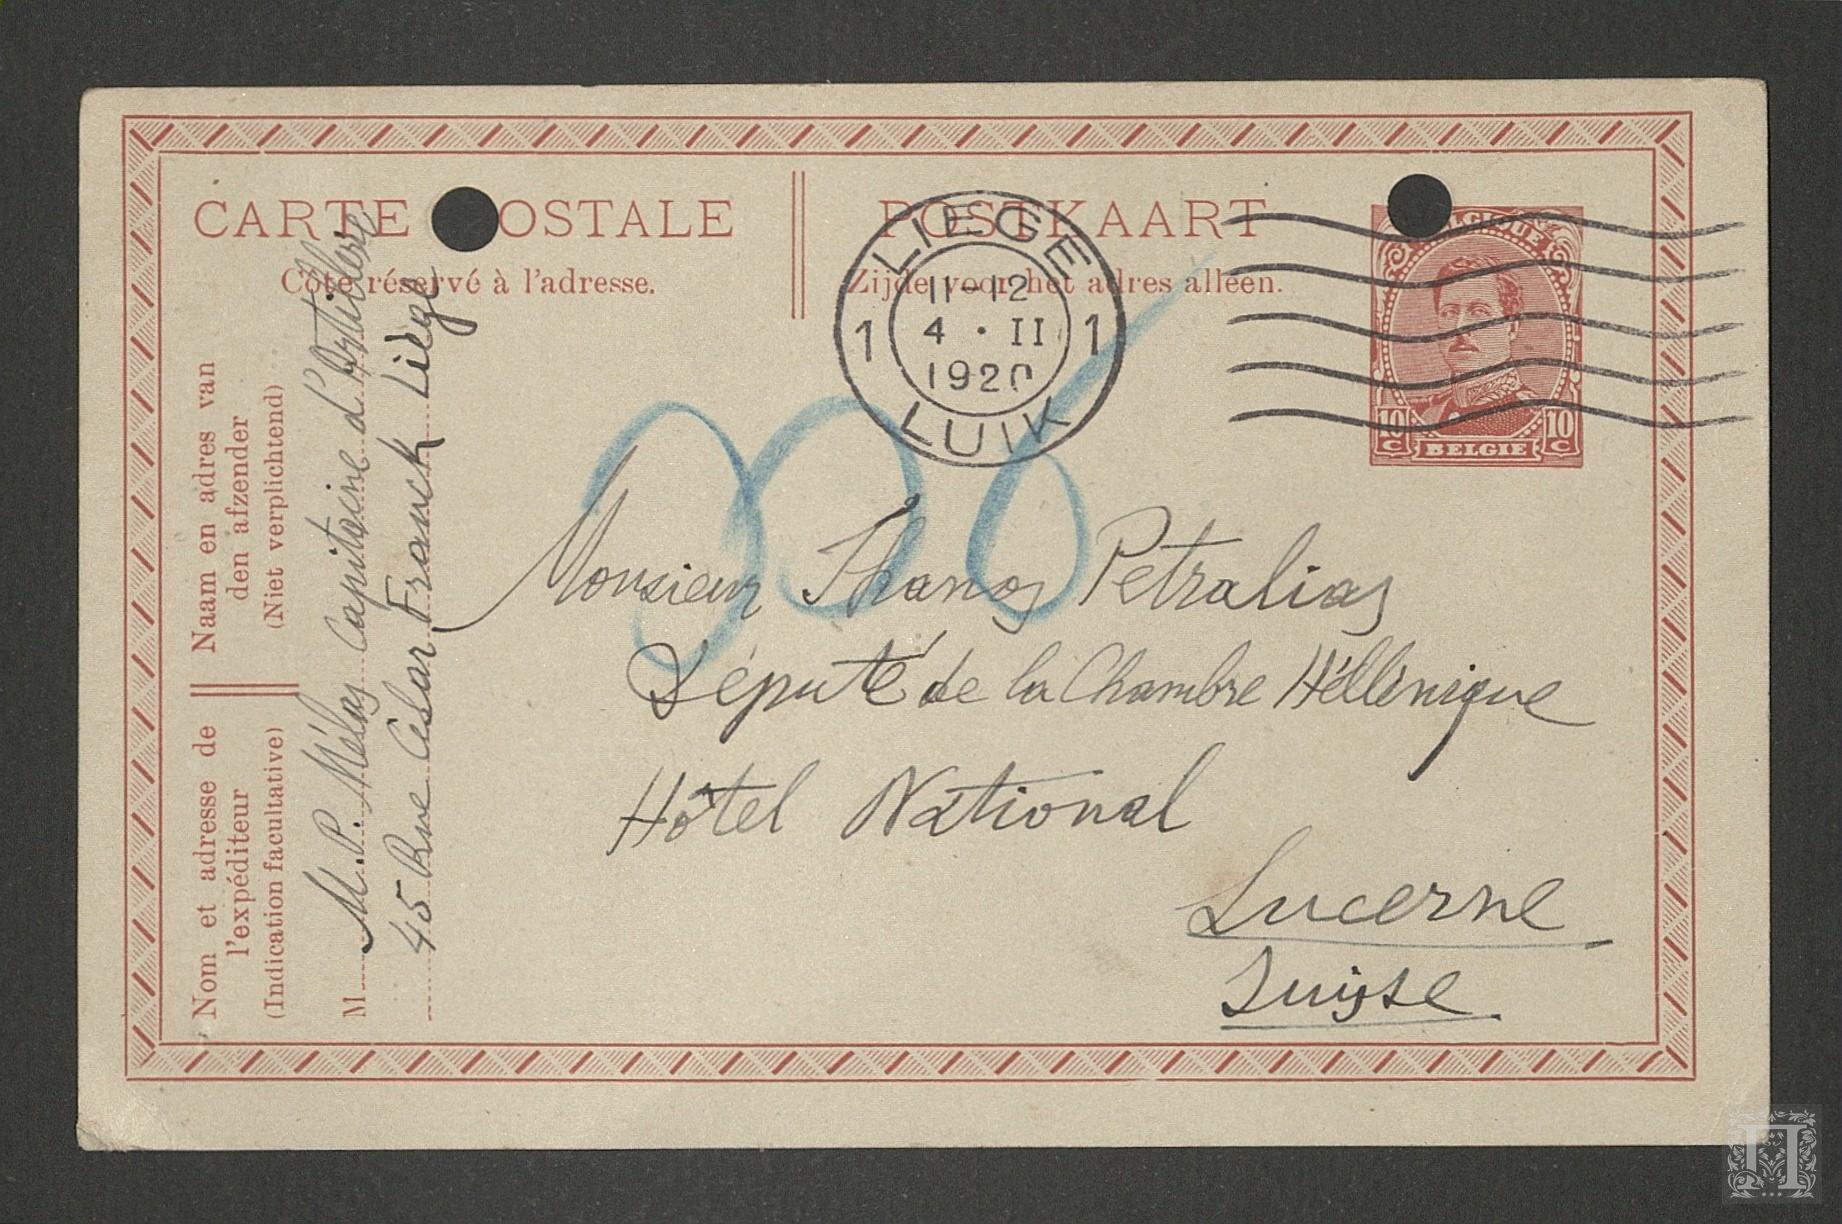 CARTE POSTALE
POSTKAART
Côté réservé à l'adresse.
Zijde voor het adres alleen.
LIEGE
1 11-12 1
4 · II
1920
LUIK
BELGIQUE
10 C 10 C
BELGIE
Naam en adres van
den afzender
(Niet verplichtend)
Nom et adresse de
l'expéditeur
(Indication facultative)
M M. P. Mélas Capitaine d'Artillerie
45 Rue César Franck Liège
Monsieur Thanos Petralias
Député de la Chambre Héllénique
Hôtel National
Lucerne
Suisse